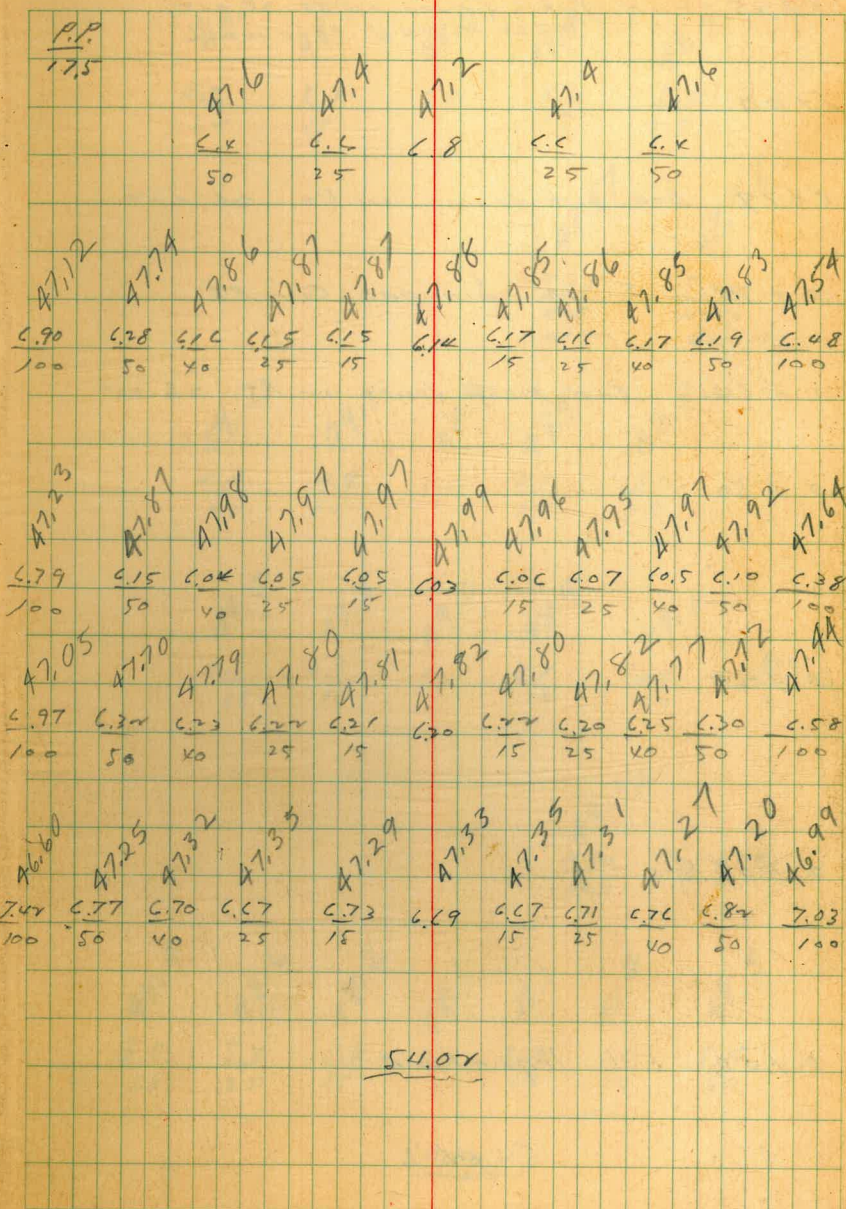 P.P.
17.5
47.6 47.4 47.2 47.4 47.6
6.4 6.6 6.8 6.6 6.4
50 25 25 50
47.12 47.74 47.86 47.87 47.87 47.88 47.85 47.86 47.85 47.83 47.54
6.90 6.28 6.16 6.15 6.15 6.14 6.17 6.16 6.17 6.19 6.48
100 50 40 25 15 15 25 40 50 100
47.23 47.87 47.98 47.97 47.97 47.99 47.96 47.95 47.97 47.92 47.64
6.79 6.15 6.04 6.05 6.05 6.03 6.06 6.07 60.5 6.10 6.38
100 50 40 25 15 15 25 40 50 100
47.05 47.70 47.79 47.80 47.81 47.82 47.80 47.82 47.77 47.72 47.44
6.97 6.32 6.23 6.22 6.21 6.20 6.22 6.20 6.25 6.30 6.58
100 50 40 25 15 15 25 40 50 100
46.60 47.25 47.32 47.35 47.29 47.33 47.35 47.31 47.27 47.20 46.99
7.42 6.77 6.70 6.67 6.73 6.69 6.67 6.71 6.76 6.82 7.03
100 50 40 25 15 15 25 40 50 100
54.02